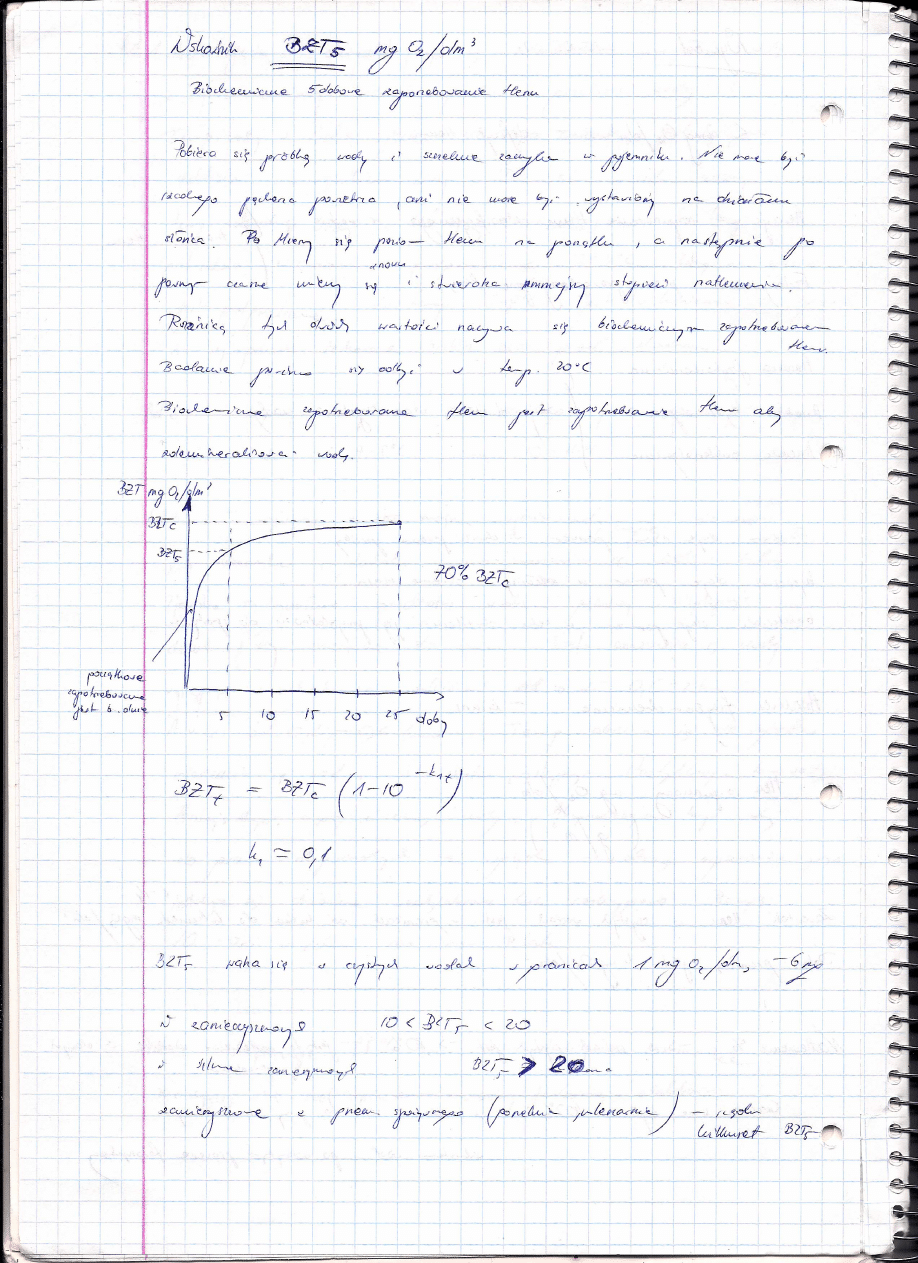 Wskaźnik BZT5 mg O2/dm³
Biochemiczne 5 dobowe zapotrzebowanie tlenu
Pobiera się próbkę wody i szczelnie zamyka w pojemniku. Nie może być
żadnego pęcherza powietrza, ani nie może być wystawiony na działanie
słońca. Po Mierzy się poziom tlenu na początku, a następnie po
znowu
pewnym czasie mierzy się i stwierdza mniejszy stopień natlenienia.
Różnicą tych dwóch wartości nazywa się biochemicznym zapotrzebowaniem
tlenu.
Badanie powinno się odbyć w temp. 20°C
Biochemiczne zapotrzebowanie tlenu jest zapotrzebowanie tlenu aby
zdemineralizować wodę.
BZT mg O2/dm³
BZTc
BZT5
70% BZTc
początkowe
zapotrzebowanie
jest b. duże
5 10 15 20 25 doby
BZTt = BZTc (1-10^-k1t)
k1 = 0,1
BZT5 waha się w czystych wodach w granicach 1 mg O2/dm3 - 6
w zanieczyszczonych 10 < BZT5 < 20
w silnie zanieczyszczonych BZT5 > 20
zanieczyszczone z przem. spożywczego (gorzelnie, mleczarnie) - rzędu
kilkuset BZT5